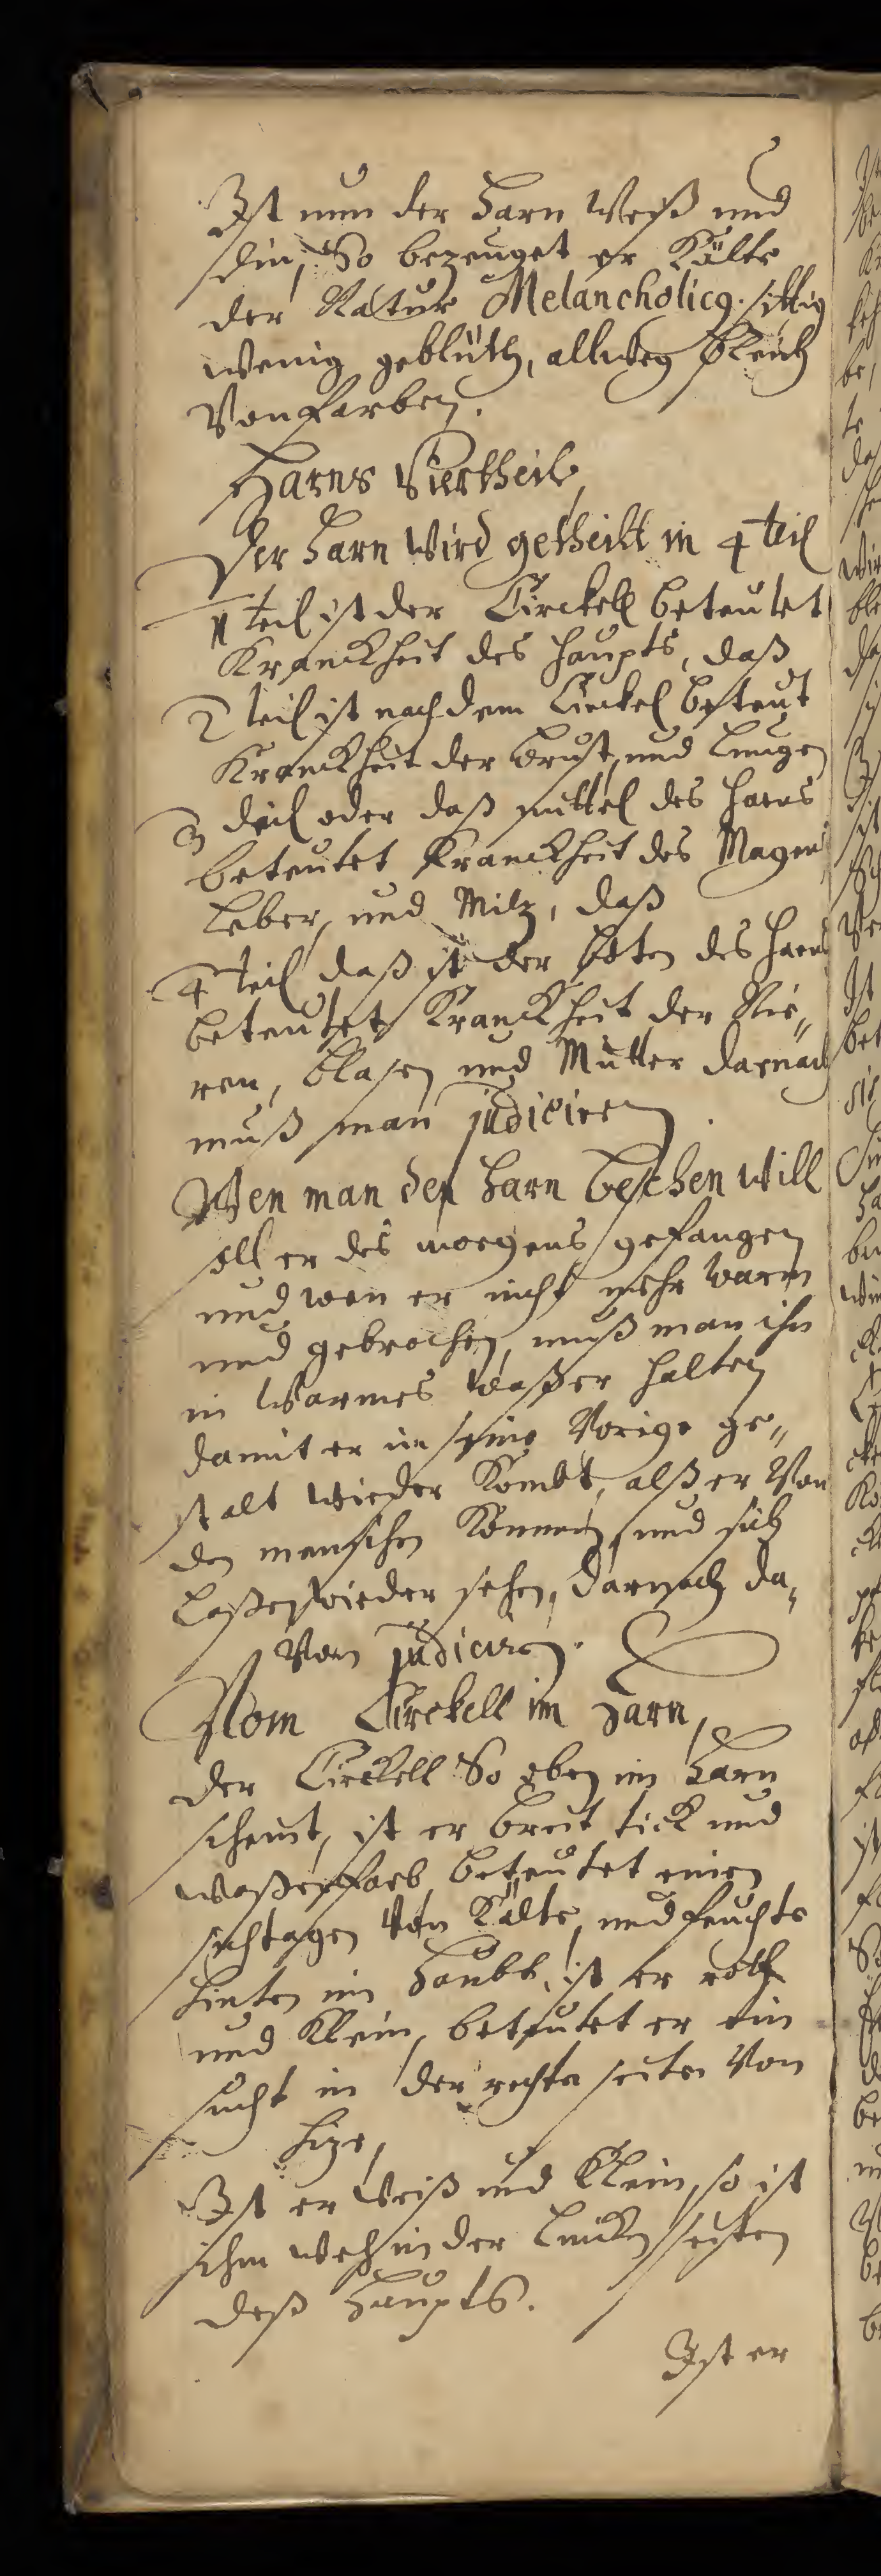 Ist nun der Harn Weiß und
din, So bezeuget er Kälte
der Natur Melancholicq. sittig
wenig geblüth, allweg bleich
Von farben.
Harns Viertheil,
Der Harn Wird getheilt in 4 teil
1 teil ist der Circkell beteutet
Kranckheit des haupts, daß
2 teil ist nach dem Circkel beteut
Kranckheit der brust, und Lungen
3 deil oder daß mittel des Harns
beteutet Kranckheit des Magen
Leber, und Milz, daß
4 teil daß ist der boten des Harns
beteutet Kranckheit der Nie„
ren, blasen und Mutter darnach
muß man judiciren.
Wen man den Harn besehen will
soll er des morgens gefangen
und wen er nicht mehr warm
und gebrochen, muß man ihn
in Warmes Waßer halten
damit er in seine Vorige ge„
stalt wieder Kombt, alß er Von
den menschen Kommen, und sich
Laßen wieder sehen, darnach da„
Von judiciren.
Vom Circkell im Harn,
der Circkell So oben im Harn
scheint, ist er breit tick und
waßerfarb beteutet einen
sichtagen Von Kälte, und feuchte
hinten im Haubt, ist er roth
und Klein, beteutet er ein
sucht in der rechten seiten Von
hize,
Ist er Weiß und Klein, so ist
ihm weh in der Lincken seiten
deß Haupts.
Ist er